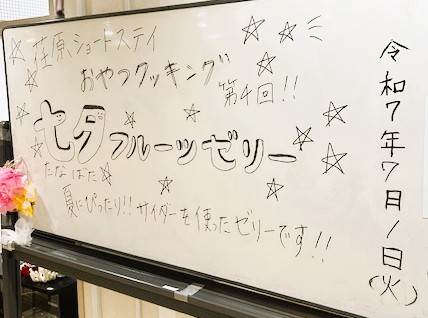 荏原ショートステイ
おやつクッキング
第4回!!
七夕フルーツゼリー
たなばた
夏にぴったり!! サイダーを使ったゼリーです!!
令和7年7月1日(火)